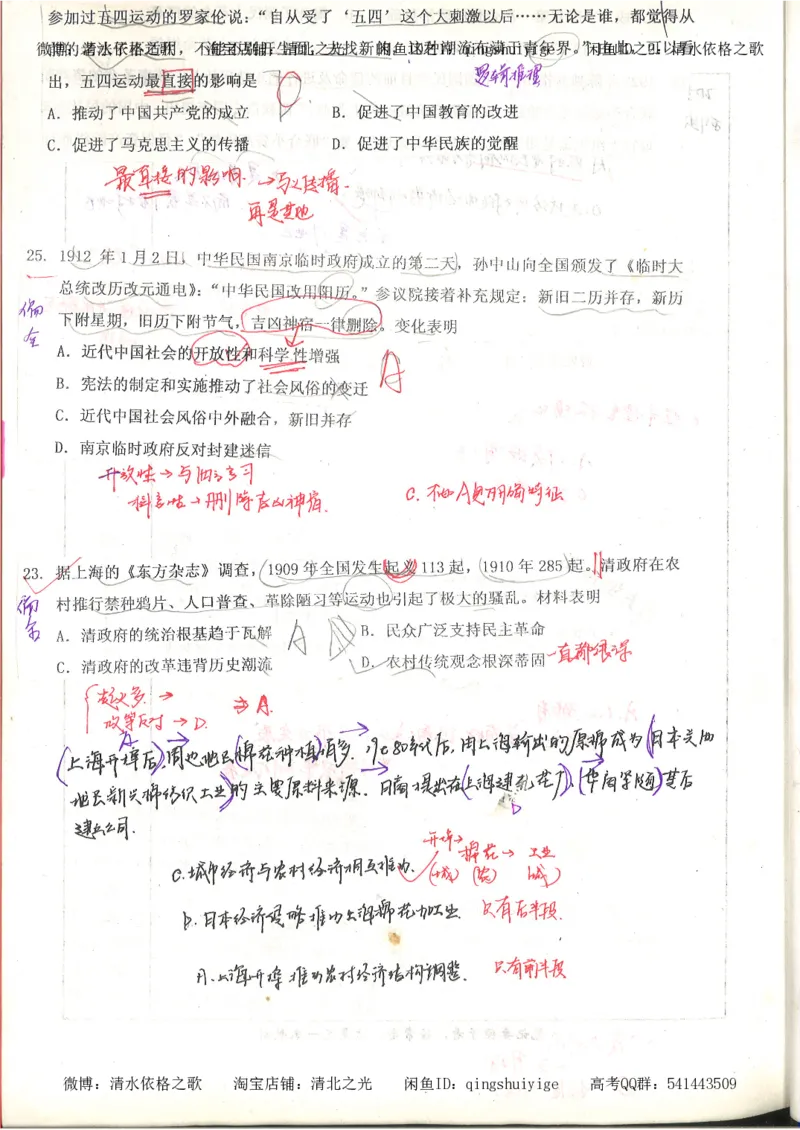 参加过五四运动的罗家伦说：“自从受了‘五四’这个大刺激以后……无论是谁，都觉得从
微博：清水依格之歌 淘宝店铺：清北之光 闲鱼ID：qingshuiyige 闲鱼ID：清水依格之歌
出，五四运动最直接的影响是
逻辑推理
A. 推动了中国共产党的成立 B. 促进了中国教育的改进
C. 促进了马克思主义的传播 D. 促进了中华民族的觉醒
最直接的影响→马义传播.
再是其他
25. 1912 年 1 月 2 日，中华民国南京临时政府成立的第二天，孙中山向全国颁发了《临时大
总统改历改元通电》：“中华民国改用阳历。”参议院接着补充规定：新旧二历并存，新历
下附星期，旧历下附节气，吉凶神宿一律删除。变化表明
偏全
A. 近代中国社会的开放性和科学性增强
A
B. 宪法的制定和实施推动了社会风俗的变迁
C. 近代中国社会风俗中外融合，新旧并存
D. 南京临时政府反对封建迷信
开放性→与旧
科学性→删除吉凶神宿.
C. 不如A更明确特征
23. 据上海的《东方杂志》调查，1909 年全国发生起义 113 起，1910 年 285 起。清政府在农
村推行禁种鸦片、人口普查、革除陋习等运动也引起了极大的骚乱。材料表明
偏全
A. 清政府的统治根基趋于瓦解 B. 民众广泛支持民主革命
A
C. 清政府的改革违背历史潮流 D. 农村传统观念根深蒂固
一直都很深
起义多→
⇒A.
改革反对→D.
A
(上海开埠后),周边地区(棉花种植)增多. 19c80年代后,由上海输出的原棉成为(日本关西
地区新兴棉纺织工业)的主要原料来源. 日商提出在(上海建轧花厂),(华商学随)其后
建立公司.
C.城市经济与农村经济相互推动.
开埠→棉花→工业
(城) (农) (城)
B.日本经济侵略推动上海棉花加工业 只有后半段.
A.上海开埠推动农村经济结构调整. 只有前半段
微博：清水依格之歌 淘宝店铺：清北之光 闲鱼ID：qingshuiyige 高考QQ群：541443509